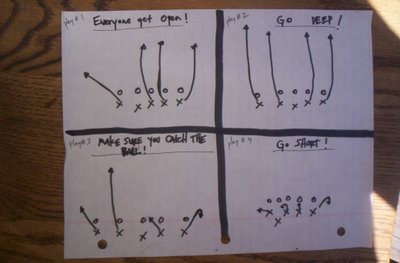 play #1
Everyone get open!
play #2
Go DEEP!
play #3
MAKE SURE YOU CATCH THE
BALL!
play #4
Go SHORT!